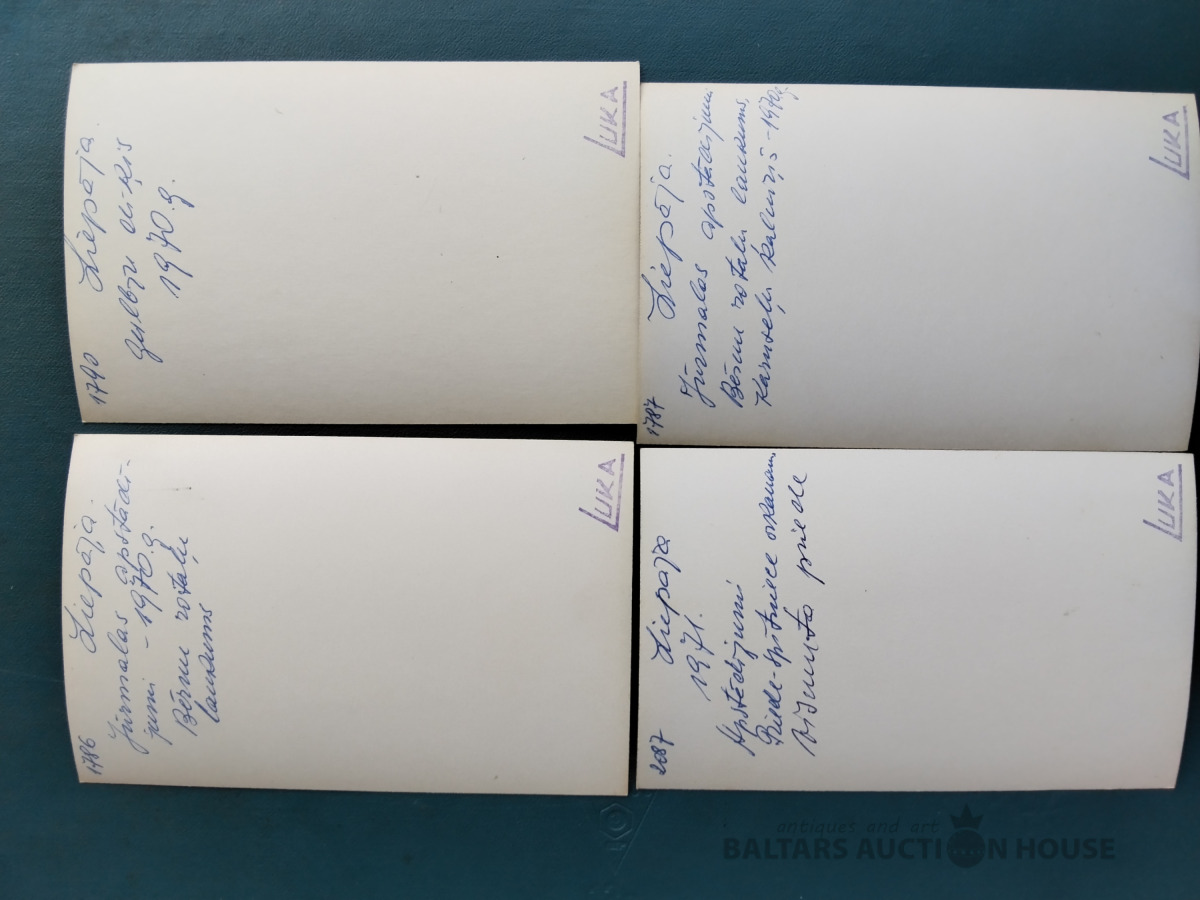 1790
Liepāja.
Gulbju dī-ķis
1970.g.
LUKA
1787
Liepāja.
Jūrmalas apstādījumi.
Bērnu rotaļu laukums,
kalniņš - 1970g.
LUKA
1786
Liepāja.
Jūrmalas apstādī-
jumi - 1970.g.
Bērnu rotaļu
laukums
LUKA
2087
Liepāja
1971.
Apstādījumi
priede
LUKA
antiques and art
BALTARS AUCTION HOUSE